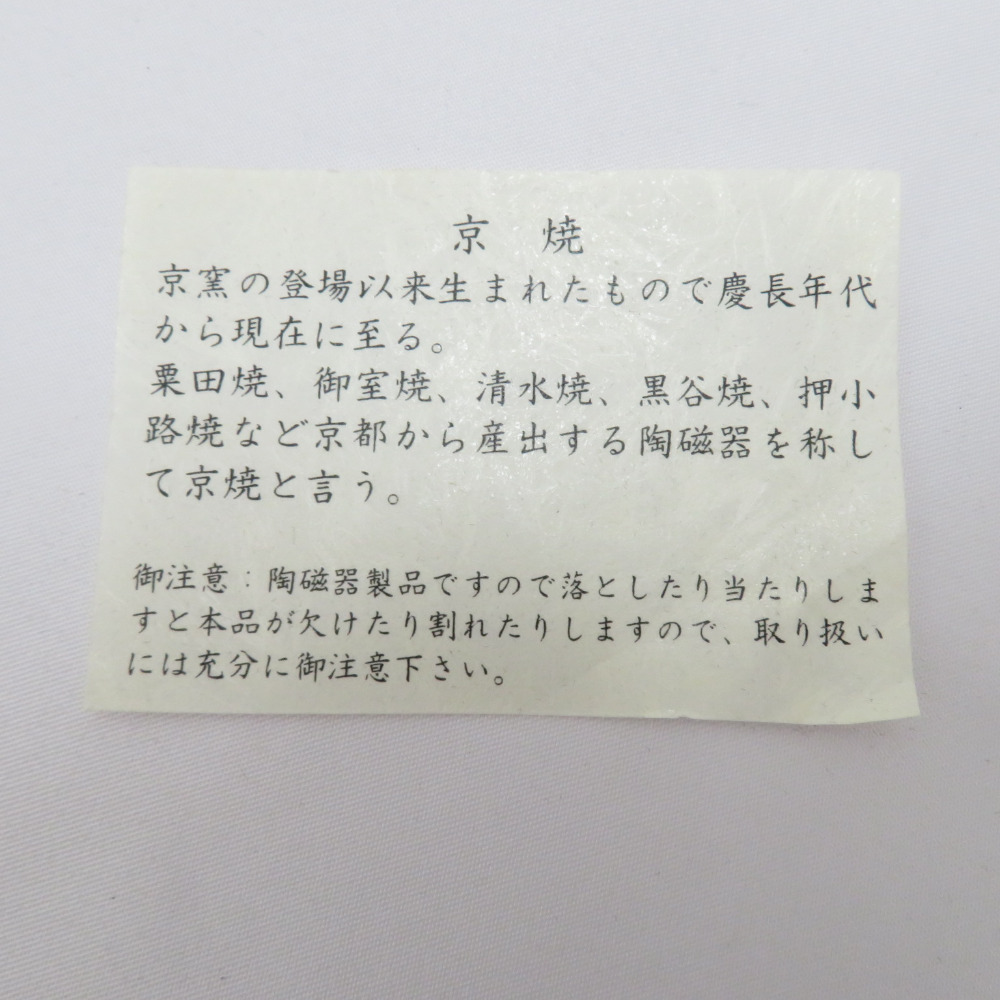 京 焼
京窯の登場以来生まれたもので慶長年代
から現在に至る。
粟田焼、御室焼、清水焼、黒谷焼、押小
路焼など京都から産出する陶磁器を称し
て京焼と言う。
御注意：陶磁器製品ですので落としたり当たりしま
すと本品が欠けたり割れたりしますので、取り扱い
には充分に御注意下さい。